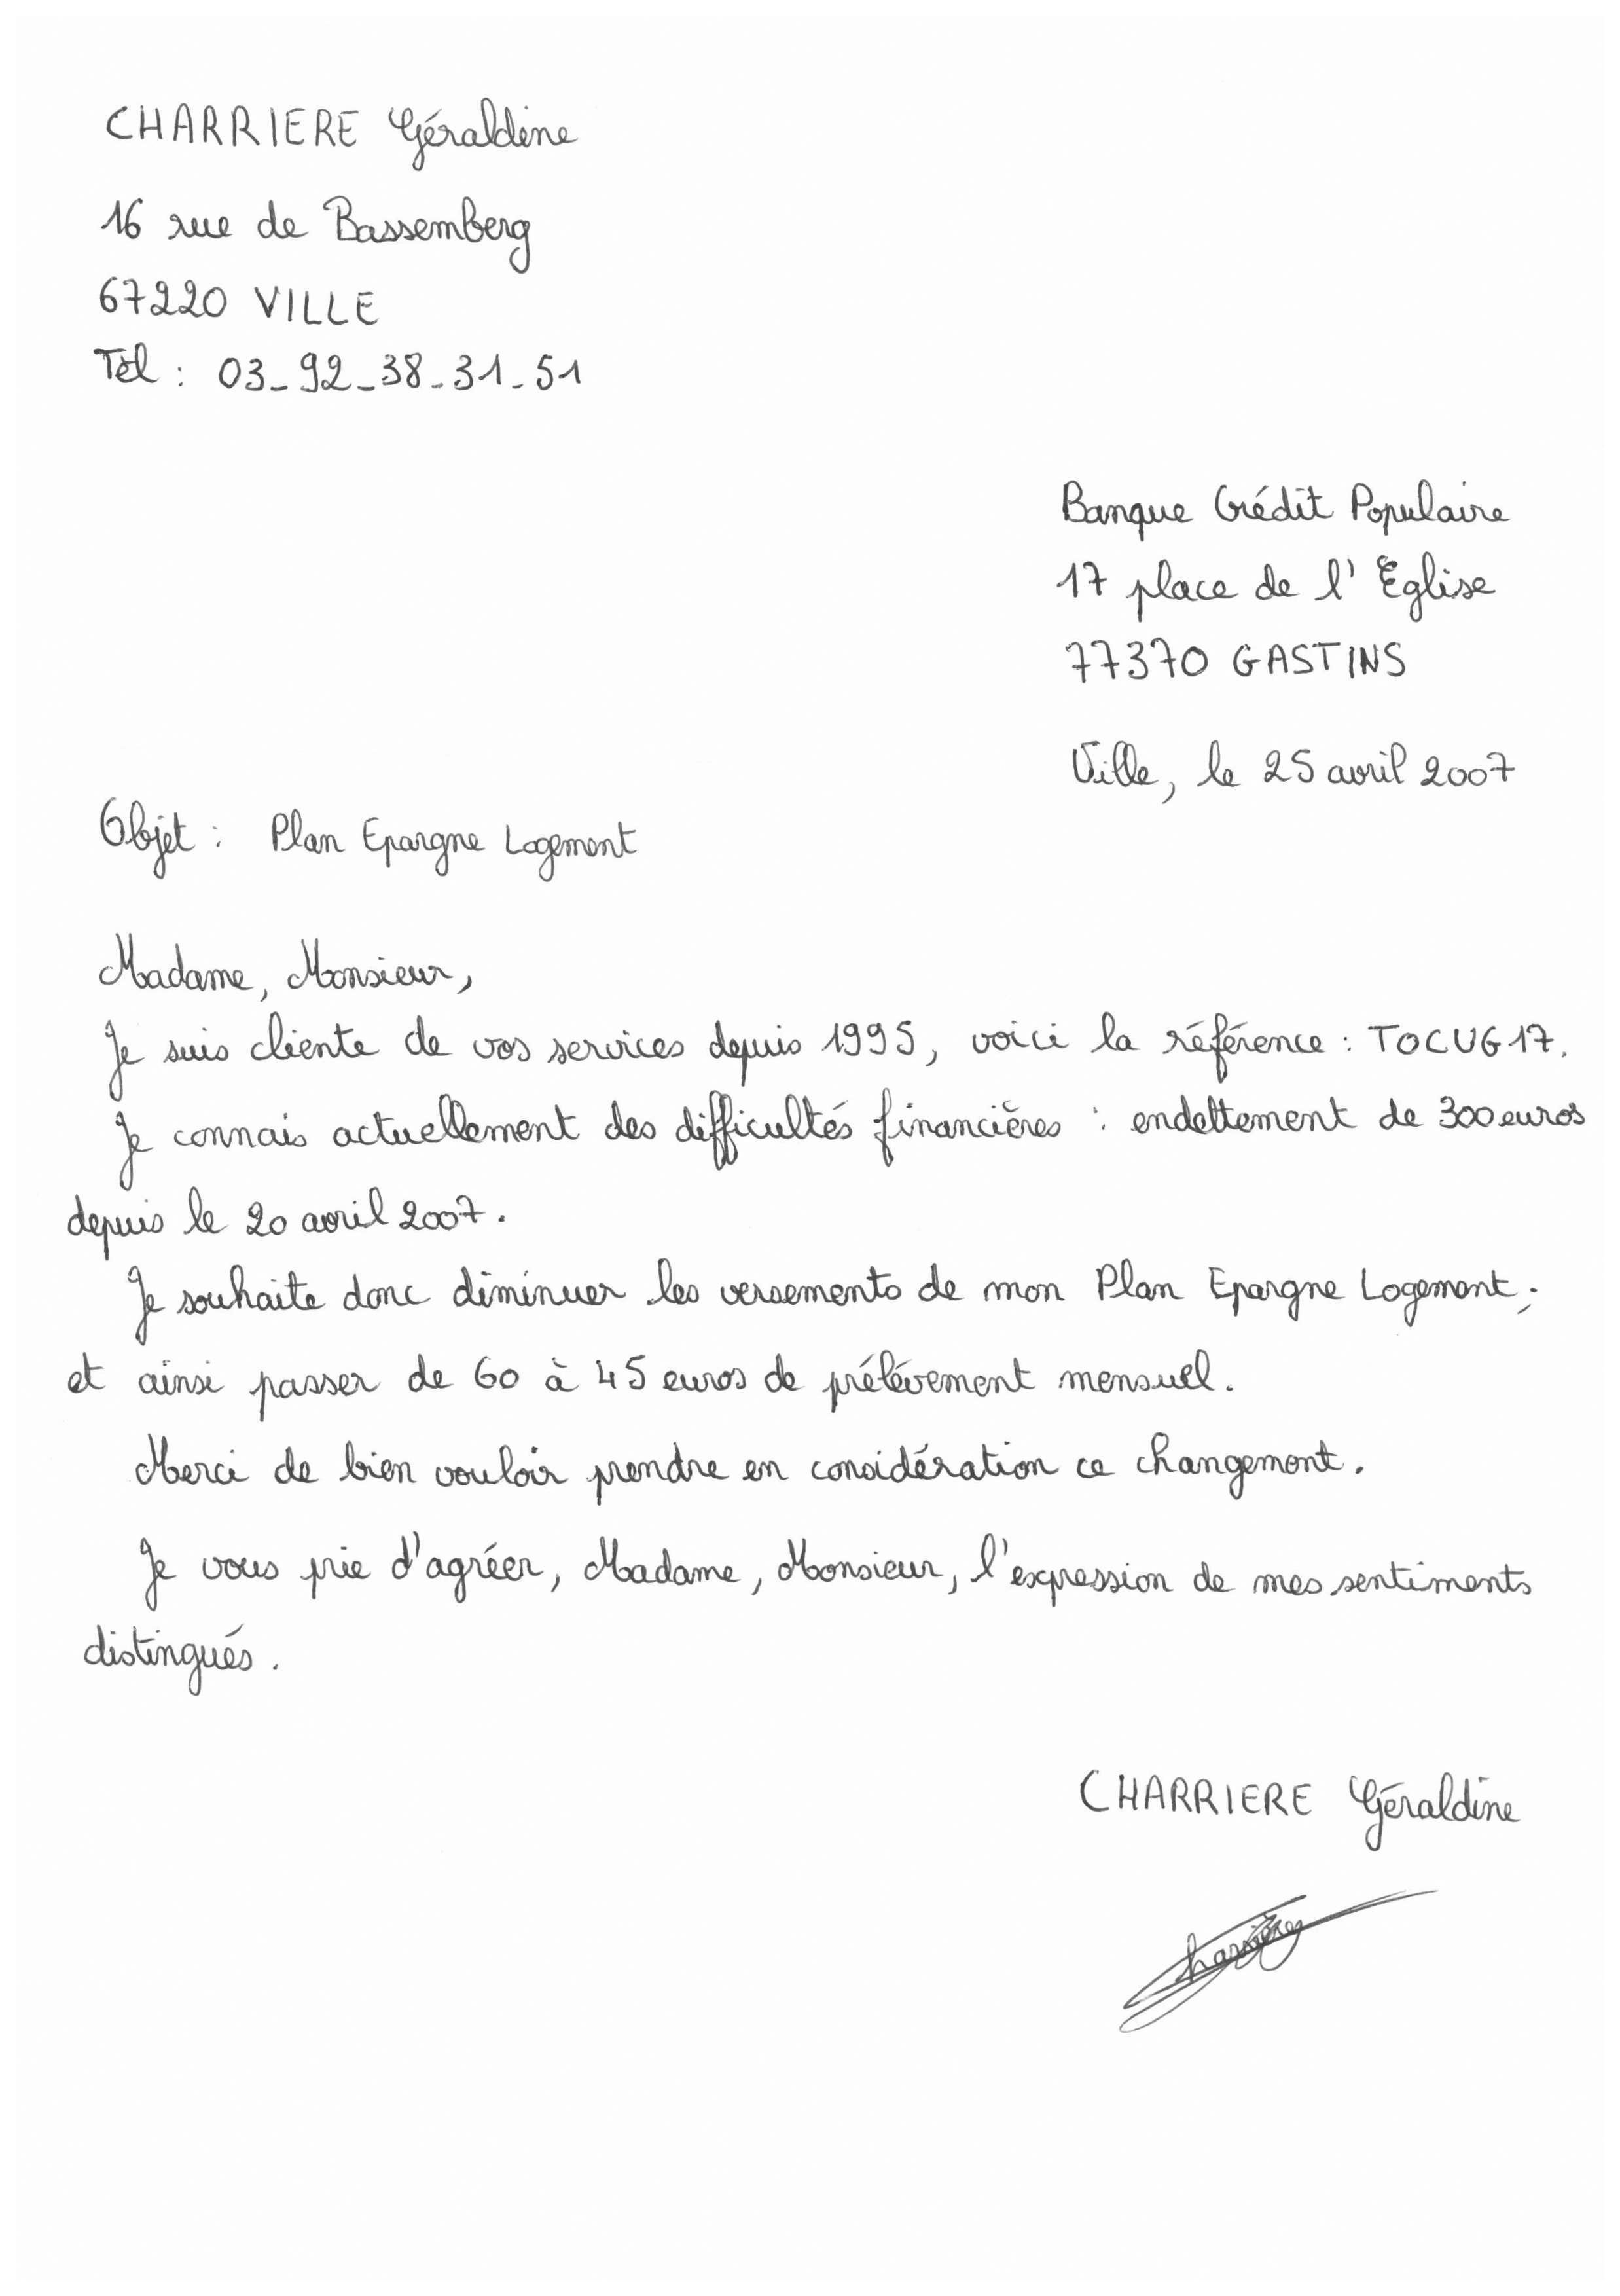 CHARRIERE Géraldine
16 rue de Bassemberg
67220 VILLE
Tèl : 03_92_38_31_51
Banque Crédit Populaire
17 place de l'Eglise
77370 GASTINS
Ville, le 25 avril 2007
Objet : Plan Epargne Logement
Madame, Monsieur,
Je suis cliente de vos services depuis 1995, voici la référence : TOCUG17.
Je connais actuellement des difficultés financières : endettement de 300 euros
depuis le 20 avril 2007.
Je souhaite donc diminuer les versements de mon Plan Epargne Logement ;
et ainsi passer de 60 à 45 euros de prélèvement mensuel.
Merci de bien vouloir prendre en considération ce changement.
Je vous prie d'agréer, Madame, Monsieur, l'expression de mes sentiments
distingués.
CHARRIERE Géraldine
Charrière